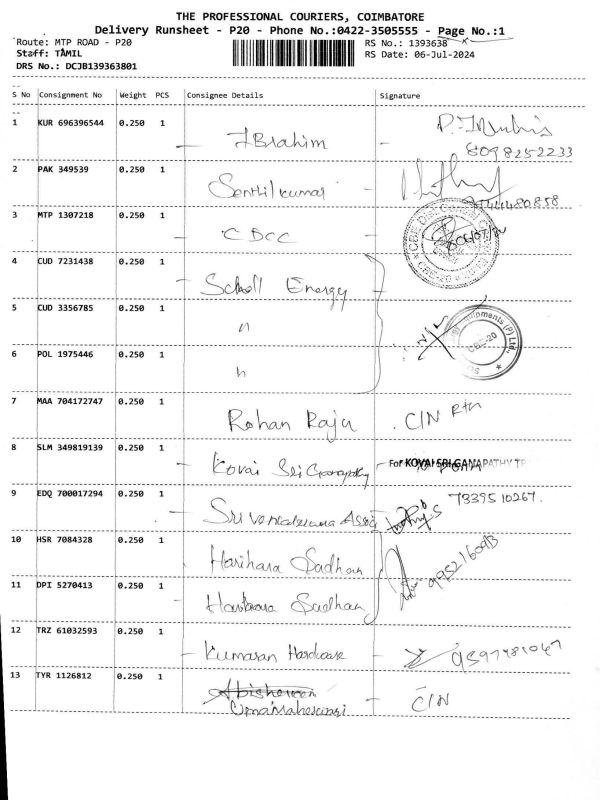 THE PROFESSIONAL COURIERS, COIMBATORE
Delivery Runsheet - P20 - Phone No.:0422-3505555 - Page No.:1
Route: MTP ROAD - P20 RS No.: 1393638
Staff: TAMIL RS Date: 06-Jul-2024
DRS No.: DCJB139363801
S No Consignment No Weight PCS Consignee Details Signature
1 KUR 696396544 0.250 1 Ibrahim
8098252233
2 PAK 349539 0.250 1 Senthil kumar
3 MTP 1307218 0.250 1 CDCC
4 CUD 7231438 0.250 1 Scholl Energy
5 CUD 3356785 0.250 1 "
6 POL 1975446 0.250 1 "
7 MAA 704172747 0.250 1 Rohan Raju CIN Rtn
8 SLM 349819139 0.250 1 Kovai Sri Ganapathy For KOVAI SRI GANAPATHY
9 EDQ 700017294 0.250 1 7339510267
10 HSR 7084328 0.250 1 Harihara Sudhan
11 DPI 5270413 0.250 1 Harihara Sudhan
12 TRZ 61032593 0.250 1 Kumaran Hardware
13 TYR 1126812 0.250 1 Umamaheswari CIN